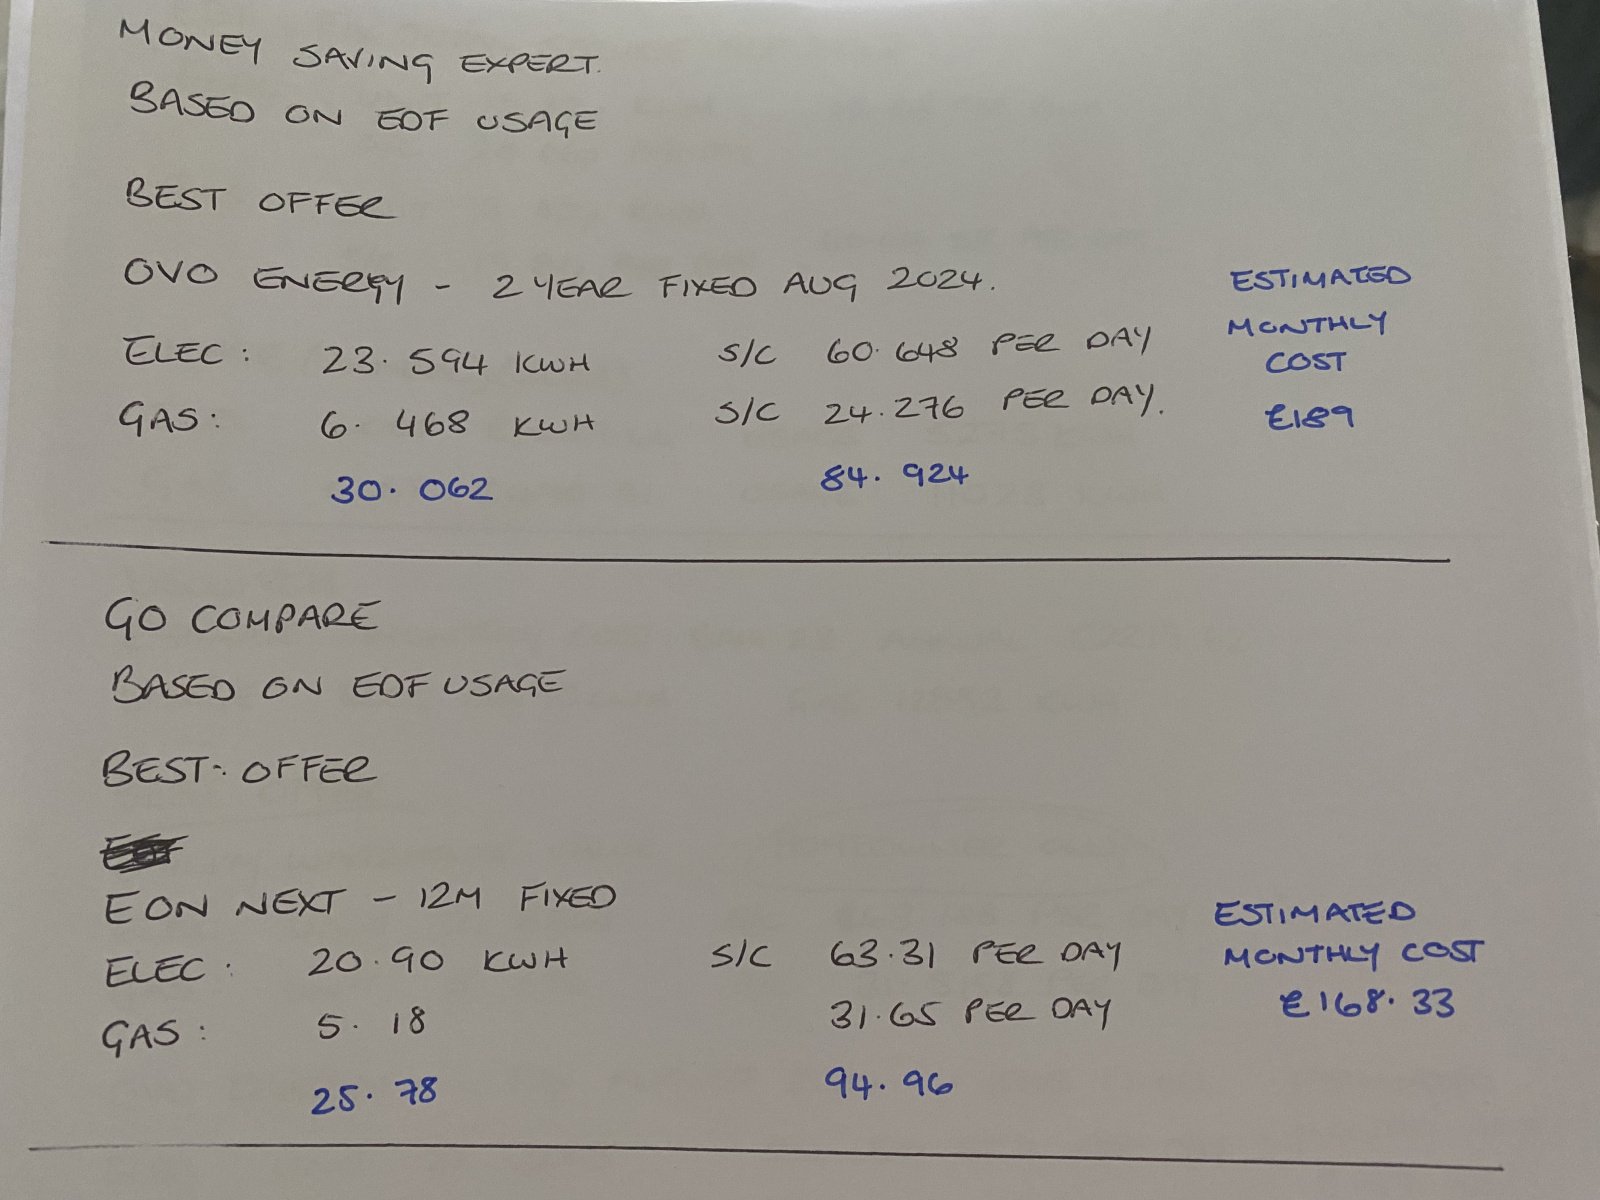 MONEY SAVING EXPERT.
BASED ON EDF USAGE
BEST OFFER
OVO ENERGY - 2 YEAR FIXED AUG 2024.
ELEC: 23.594 KWH S/C 60.648 PER DAY
GAS: 6.468 KWH S/C 24.276 PER DAY.
30.062 84.924
ESTIMATED
MONTHLY
COST
£189
GO COMPARE
BASED ON EDF USAGE
BEST OFFER
EON NEXT - 12M FIXED
ELEC: 20.90 KWH S/C 63.31 PER DAY
GAS: 5.18 31.65 PER DAY
25.78 94.96
ESTIMATED
MONTHLY COST
£168.33